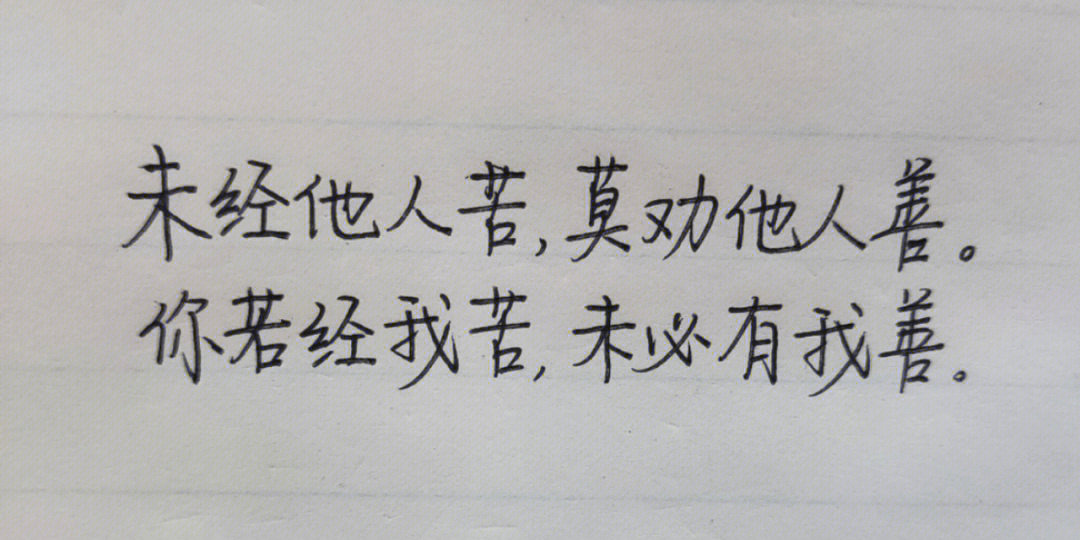 未经他人苦,莫劝他人善。
你若经我苦,未必有我善。